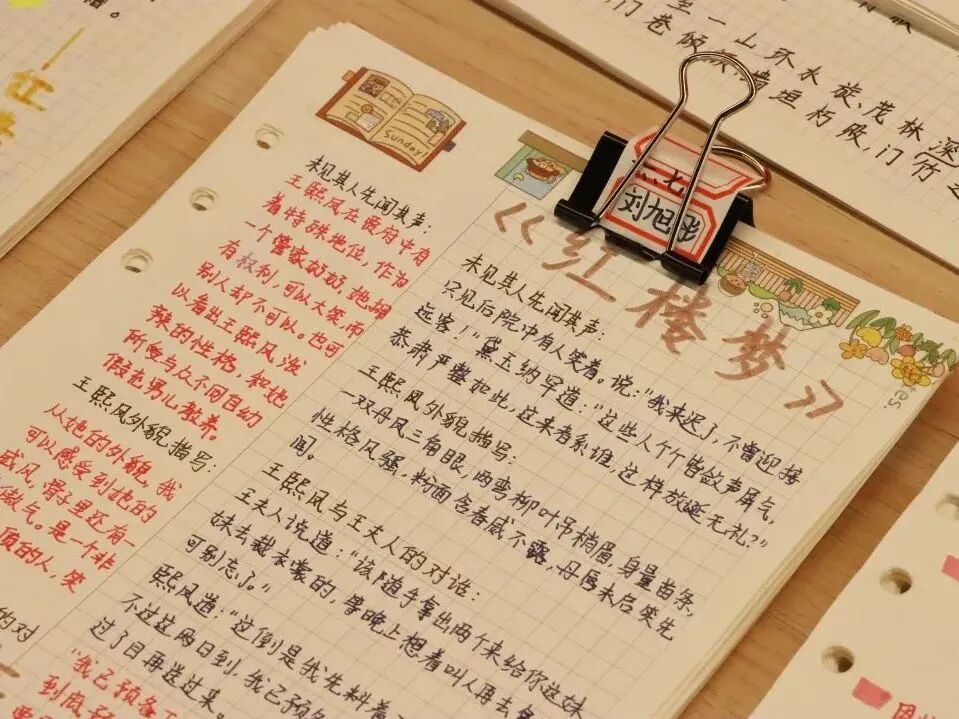 红
至一山环水旋、茂林深
门巷倾颓,墙垣朽败,门
Sunday!
刘旭彤
《红楼梦》
未见其人先闻其声:
王熙凤在贾府中有
着特殊地位,作为
一个管家奶奶,她拥
有权利,可以大笑,而
别人却不可以。也可
以看出王熙凤泼
辣的性格,和她
所受与众不同自幼
假充男儿教养。
王熙凤外貌描写:
从她的外貌,我
可以感受到她的
威风,骨子里还有一
傲气。是一个非
的人,笑
的对
"我已预备
到底
未见其人先闻其声:
只见后院中有人笑着。说:"我来迟了,不曾迎接
远客!"黛玉纳罕道:"这些人个个皆敛声屏气,
恭肃严整如此,这来者系谁,这样放诞无礼?"
王熙凤外貌描写:
一双丹风三角眼,两弯柳叶吊梢眉,身量苗条,
性格风骚,粉面含春威不露,丹唇未启笑先
闻。
王熙凤与王夫人的对话:
王夫人说道:"该随手拿出两个来给你这妹
妹去裁衣裳的,等晚上想着叫人再去
可别忘了。"
熙凤道:"这倒是我先料着
不过这两日到,我已预
过了目再送过来。